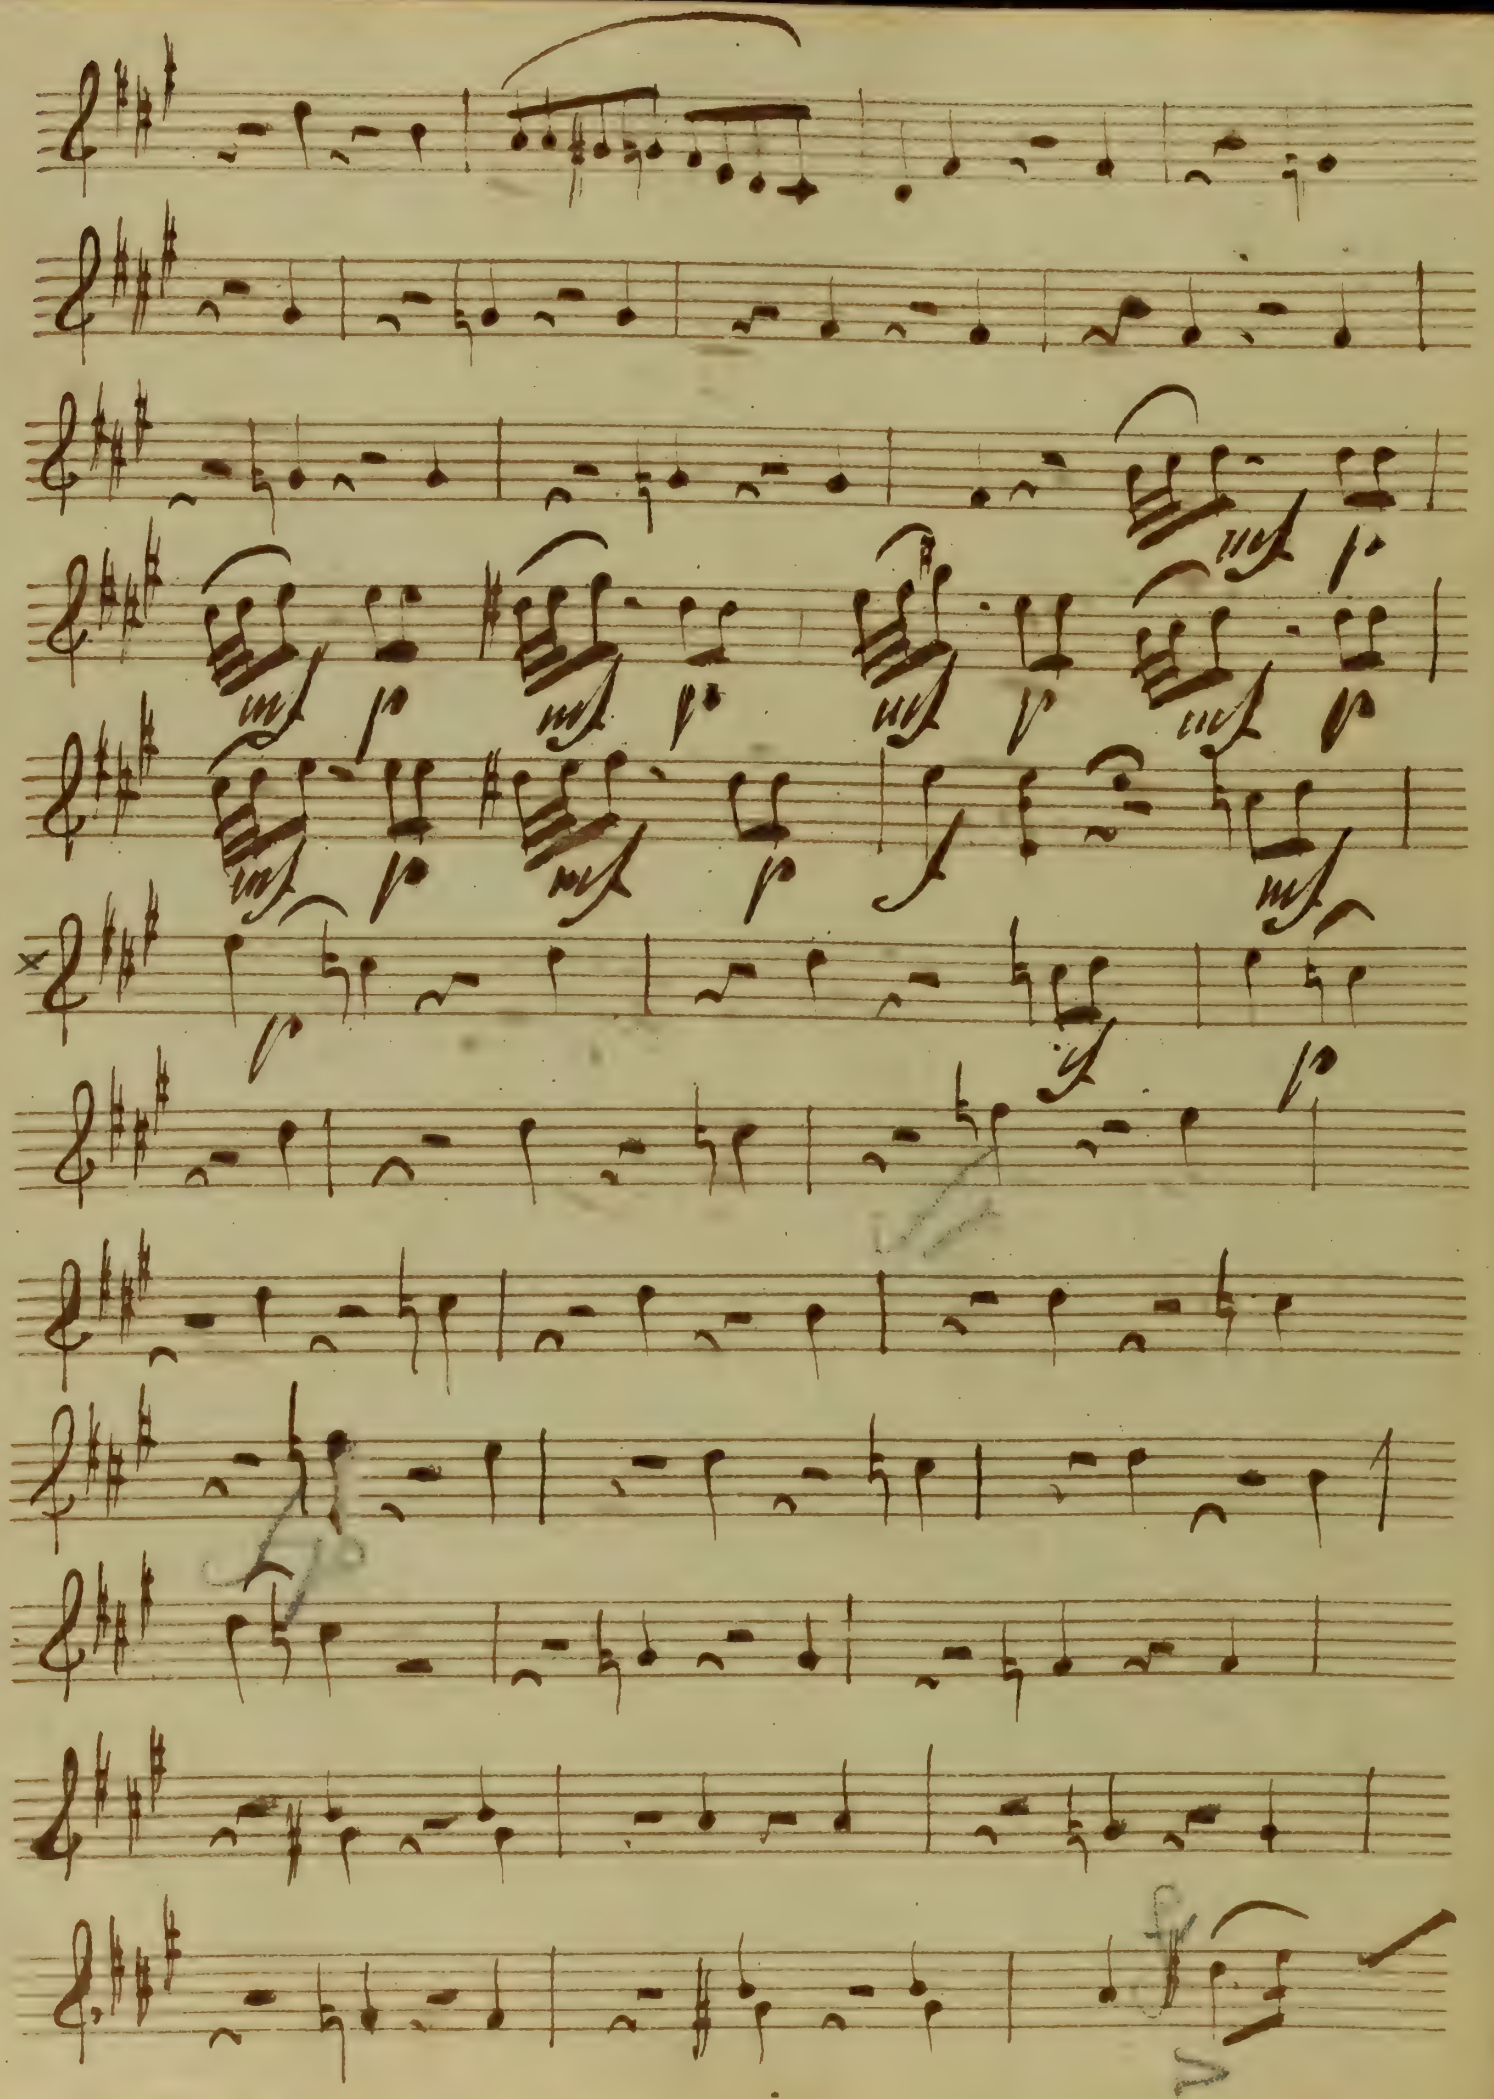 mf p
mf p mf p mf p mf p
mf p mf p f mf
p sf p
fp
f